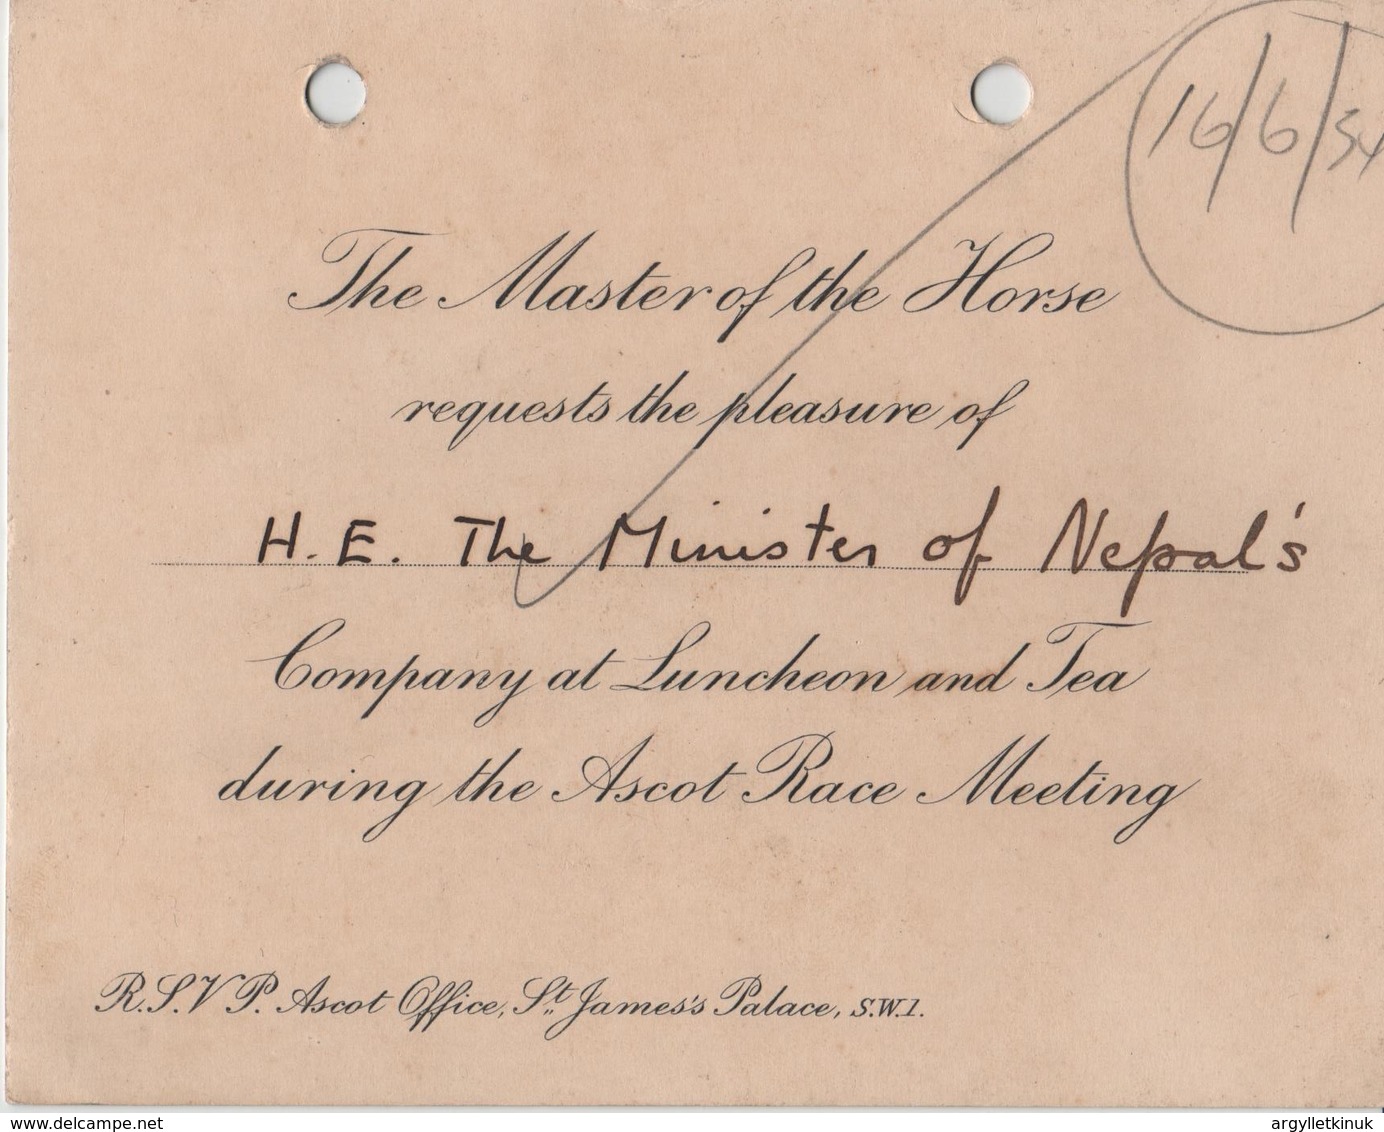 16/6/54
The Master of the Horse
requests the pleasure of
H.E. The Minister of Nepal's
Company at Luncheon and Tea
during the Ascot Race Meeting
R.S.V.P. Ascot Office, St. James's Palace, S.W.1.
www.delcampe.net
argylletkinuk